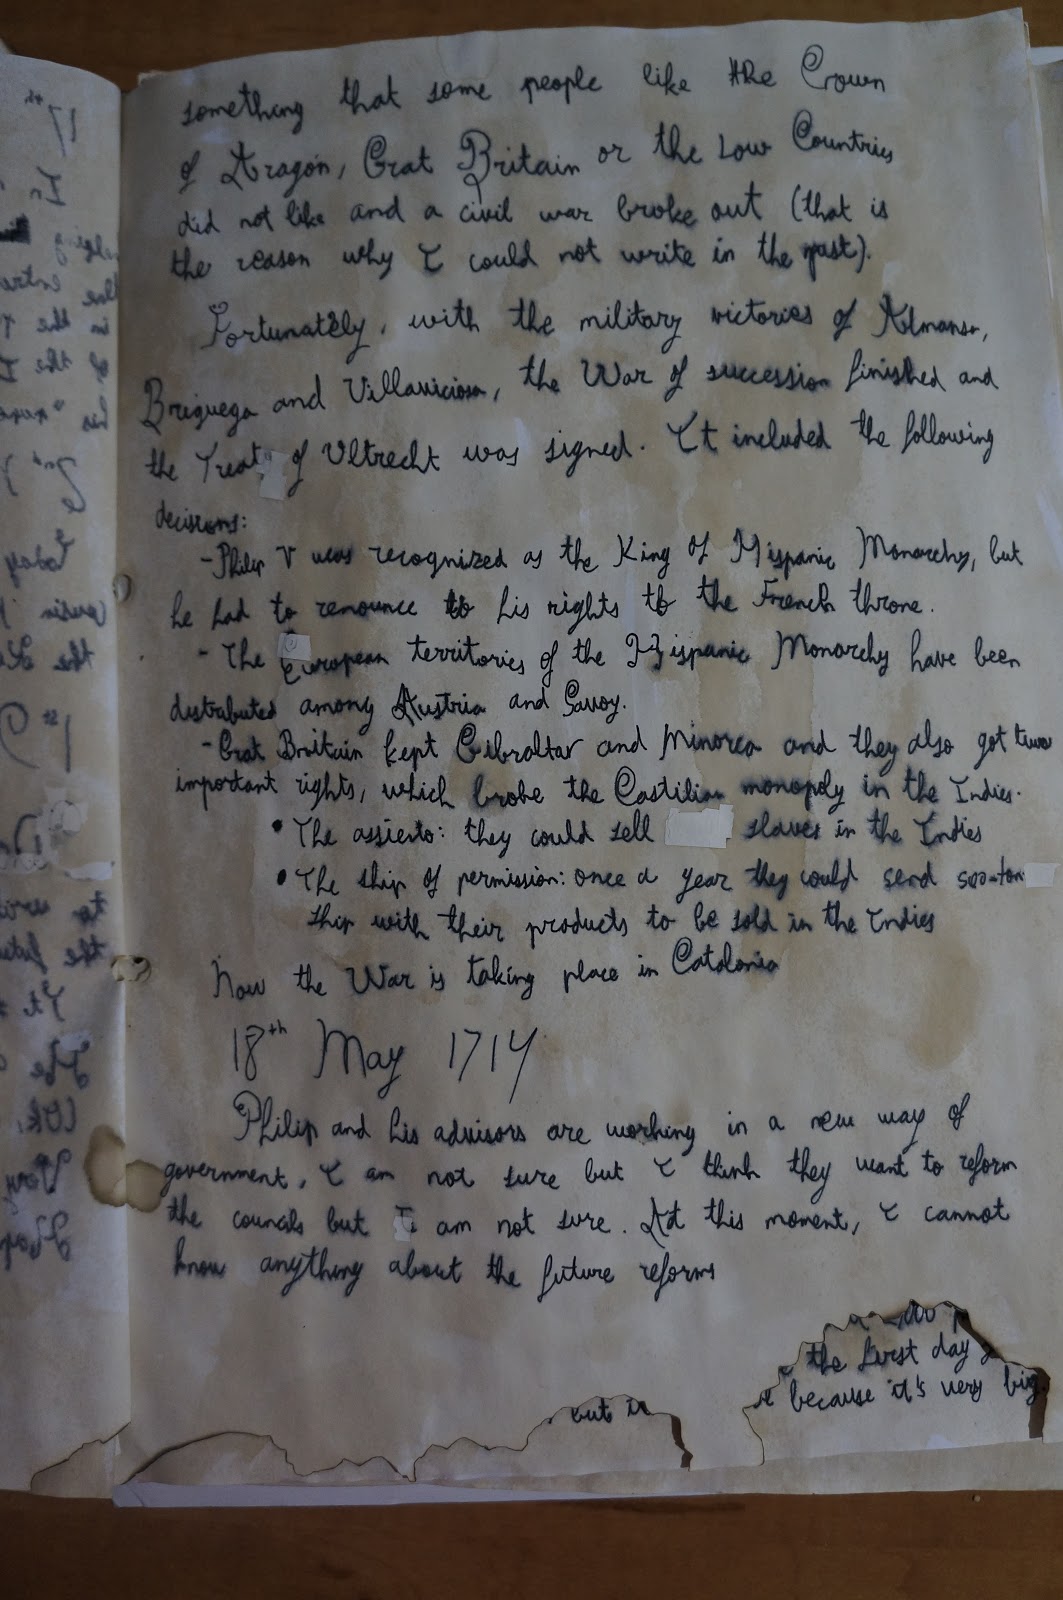 something that some people like the Crown
of Aragón, Grat Britain or the Low Countries
did not like and a civil war broke out (that is
the reason why I could not write in the past).
Fortunatelly, with the military victories of Almansa,
Briguega and Villaviciosa, the War of succession finished and
the Treaty of Ultrecht was signed. It included the following
decisions:
- Philip V was recognized as the King of Hispanic Monarchy, but
he had to renounce to his rights to the French throne.
- The European territories of the Hispanic Monarchy have been
distributed among Austria and Savoy.
- Grat Britain kept Gibraltar and Minorca and they also got two
important rights, which broke the Castilian monopoly in the Indies.
• The assiento: they could sell slaves in the Indies
• The ship of permission: once a year they could send 500-ton
ship with their products to be sold in the Indies
Now the War is taking place in Catalonia
18th May 1714
Philip and his advisors are working in a new way of
government, I am not sure but I think they want to reform
the councils but I am not sure. At this moment, I cannot
know anything about the future reforms
the first day
because it's very big
but in
17th
In
in the
of the
his
2nd
Today
cousin
the
1st
to
the
It
The
Ok,